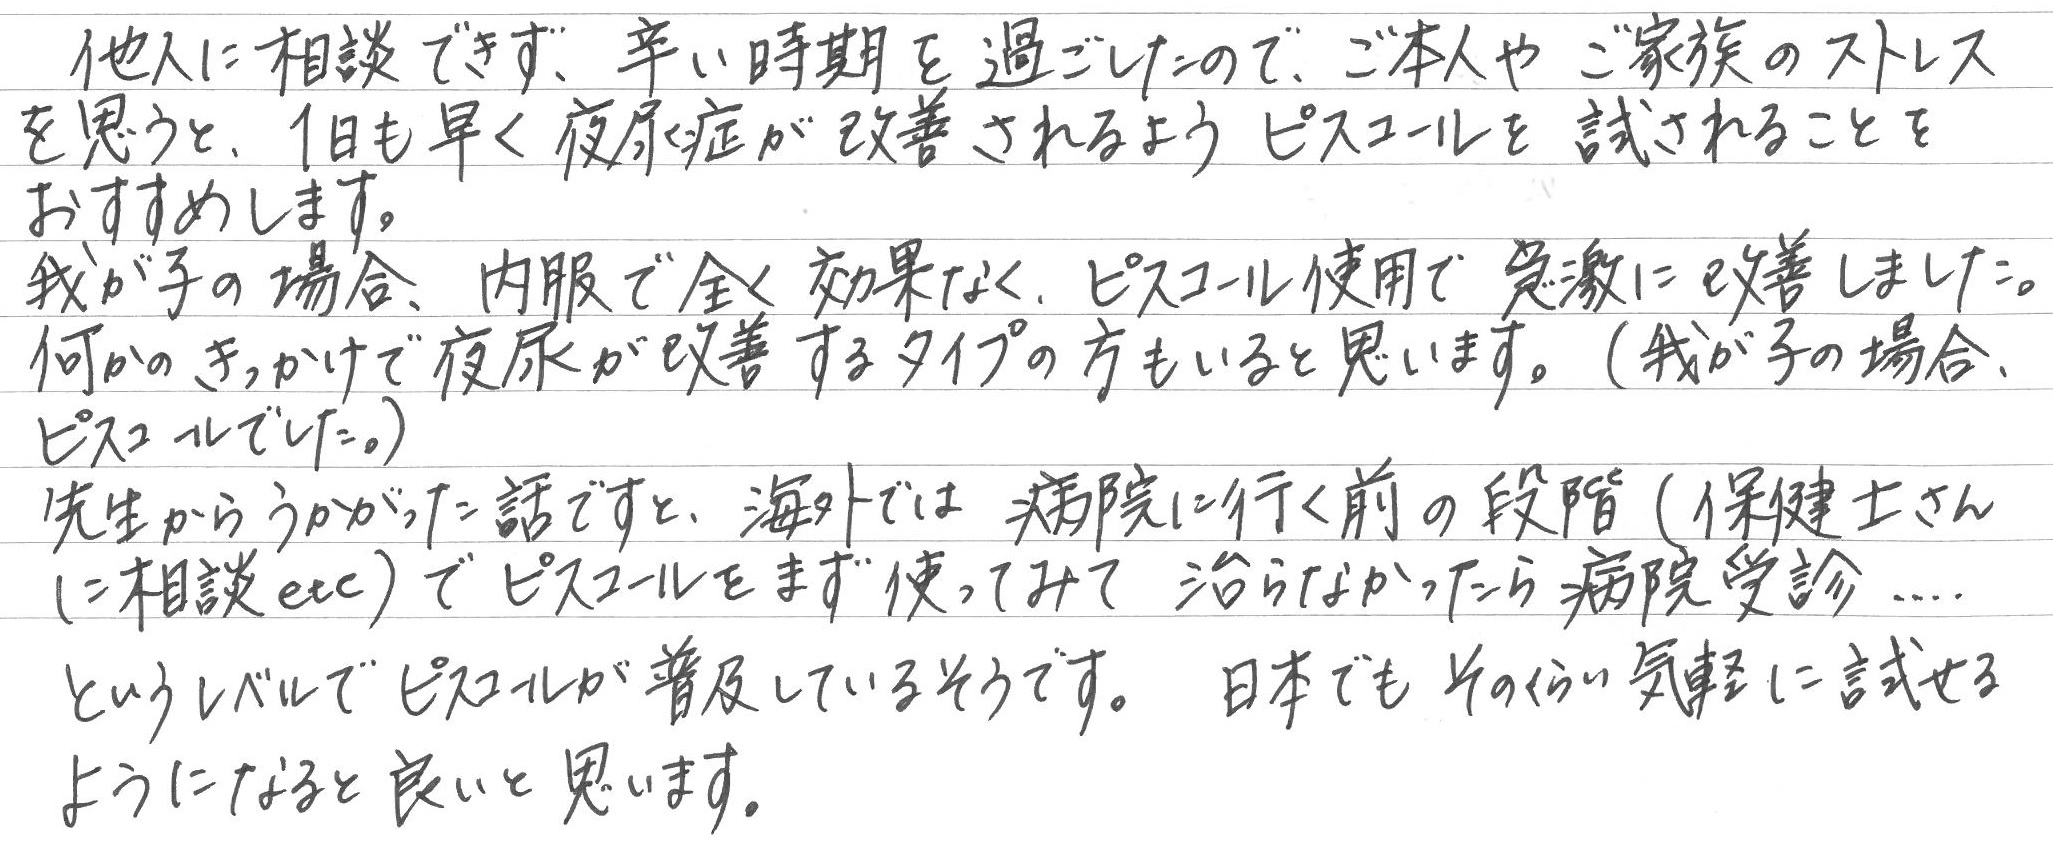 他人に相談できず、辛い時期を過ごしたので、ご本人やご家族のストレス
を思うと、1日も早く夜尿症が改善されるようピスコールを試されることを
おすすめします。
我が子の場合、内服で全く効果なく、ピスコール使用で急激に改善しました。
何かのきっかけで夜尿が改善するタイプの方もいると思います。(我が子の場合、
ピスコールでした。)
先生からうかがった話ですと、海外では病院に行く前の段階(保健士さん
に相談etc)でピスコールをまず使ってみて治らなかったら病院受診....
というレベルでピスコールが普及しているそうです。 日本でもそのくらい気軽に試せる
ようになると良いと思います。